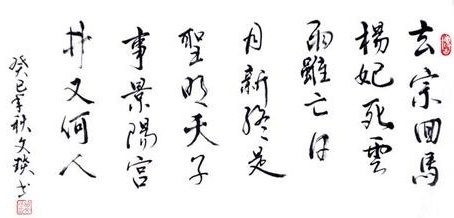 玄宗回馬
楊妃死雲
雨雖亡日
月新終是
聖明天子
事景陽宮
井又何人
癸巳年秋文书